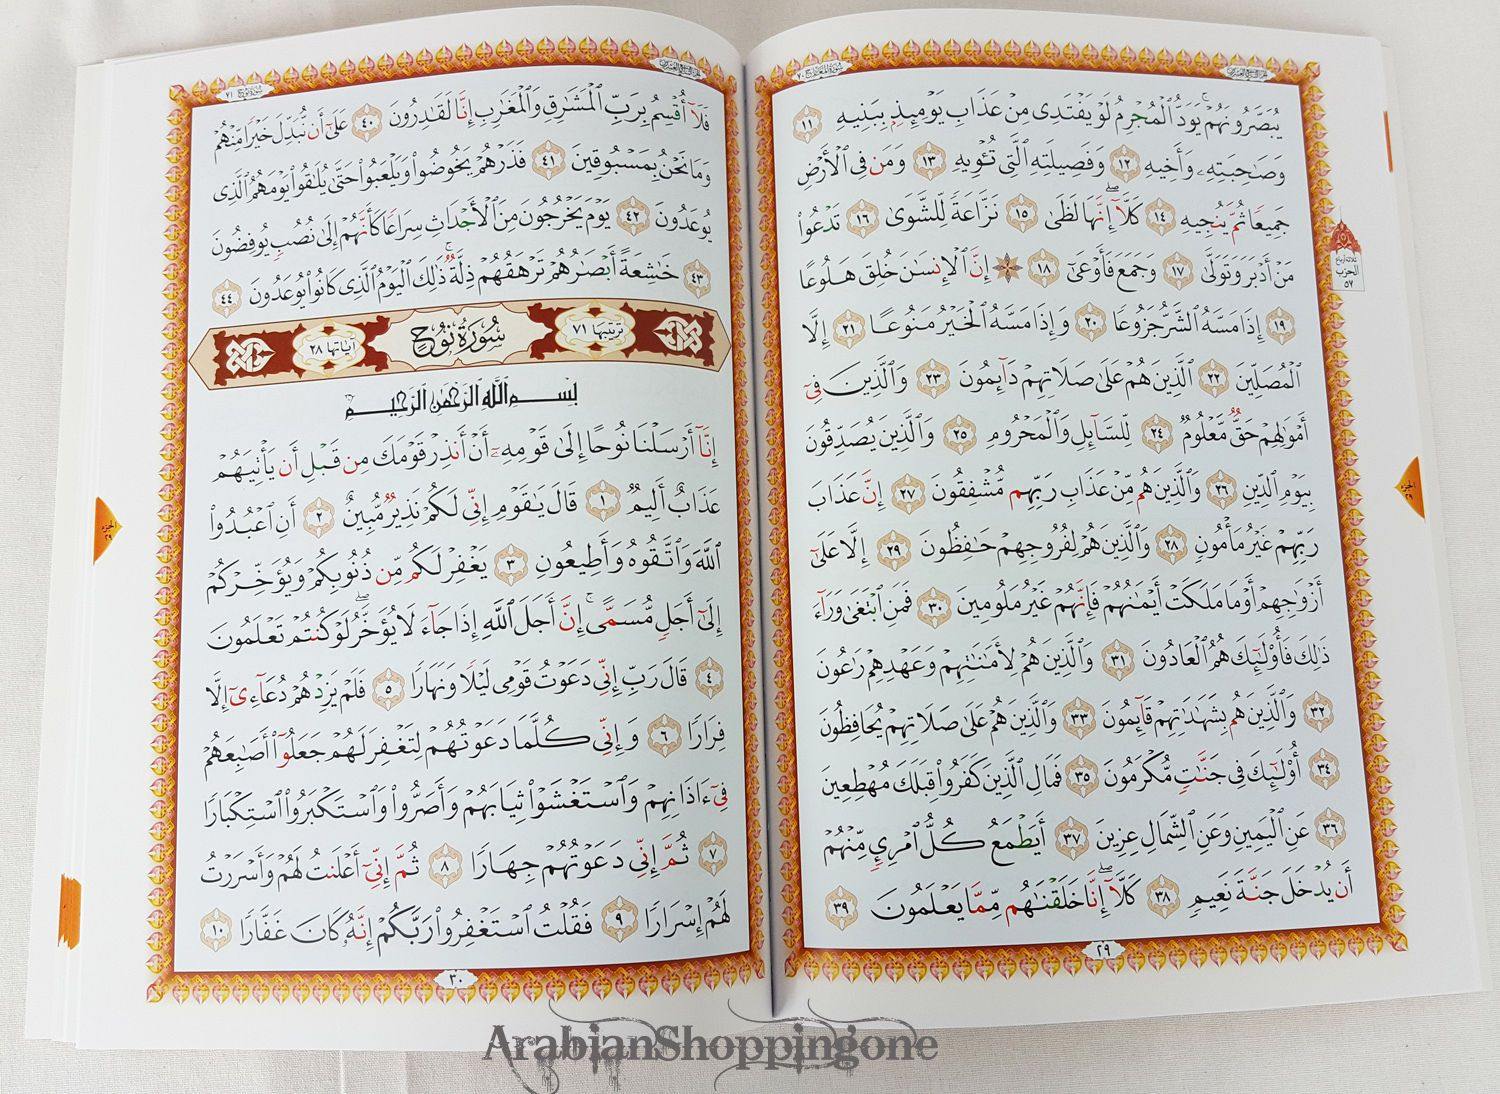 سُورَةُ المَعَارِجِ ٧٠
الجُزْءُ التَّاسِعُ وَالعِشْرُونَ
يُبَصَّرُونَهُمْ ۚ يَوَدُّ الْمُجْرِمُ لَوْ يَفْتَدِى مِنْ عَذَابِ يَوْمِئِذِۭ بِبَنِيهِ ١١
وَصَـٰحِبَتِهِۦ وَأَخِيهِ ١٢ وَفَصِيلَتِهِ الَّتِى تُـْٔوِيهِ ١٣ وَمَن فِى الْأَرْضِ
جَمِيعًا ثُمَّ يُنجِيهِ ١٤ كَلَّآ ۖ إِنَّهَا لَظَىٰ ١٥ نَزَّاعَةً لِّلشَّوَىٰ ١٦ تَدْعُوا۟
مَنْ أَدْبَرَ وَتَوَلَّىٰ ١٧ وَجَمَعَ فَأَوْعَىٰٓ ١٨ ۞ إِنَّ الْإِنسَـٰنَ خُلِقَ هَلُوعًا
١٩ إِذَا مَسَّهُ الشَّرُّ جَزُوعًا ٢٠ وَإِذَا مَسَّهُ الْخَيْرُ مَنُوعًا ٢١ إِلَّا
الْمُصَلِّينَ ٢٢ الَّذِينَ هُمْ عَلَىٰ صَلَاتِهِمْ دَآئِمُونَ ٢٣ وَالَّذِينَ فِىٓ
أَمْوَٰلِهِمْ حَقٌّ مَّعْلُومٌ ٢٤ لِّلسَّآئِلِ وَالْمَحْرُومِ ٢٥ وَالَّذِينَ يُصَدِّقُونَ
بِيَوْمِ الدِّينِ ٢٦ وَالَّذِينَ هُم مِّنْ عَذَابِ رَبِّهِم مُّشْفِقُونَ ٢٧ إِنَّ عَذَابَ
رَبِّهِمْ غَيْرُ مَأْمُونٍ ٢٨ وَالَّذِينَ هُمْ لِفُرُوجِهِمْ حَـٰفِظُونَ ٢٩ إِلَّا عَلَىٰٓ
أَزْوَٰجِهِمْ أَوْ مَا مَلَكَتْ أَيْمَـٰنُهُمْ فَإِنَّهُمْ غَيْرُ مَلُومِينَ ٣٠ فَمَنِ ابْتَغَىٰ وَرَآءَ
ذَٰلِكَ فَأُو۟لَـٰٓئِكَ هُمُ الْعَادُونَ ٣١ وَالَّذِينَ هُمْ لِأَمَـٰنَـٰتِهِمْ وَعَهْدِهِمْ رَٰعُونَ
٣٢ وَالَّذِينَ هُم بِشَهَـٰدَٰتِهِمْ قَآئِمُونَ ٣٣ وَالَّذِينَ هُمْ عَلَىٰ صَلَاتِهِمْ يُحَافِظُونَ
٣٤ أُو۟لَـٰٓئِكَ فِى جَنَّـٰتٍ مُّكْرَمُونَ ٣٥ فَمَالِ الَّذِينَ كَفَرُوا۟ قِبَلَكَ مُهْطِعِينَ
٣٦ عَنِ الْيَمِينِ وَعَنِ الشِّمَالِ عِزِينَ ٣٧ أَيَطْمَعُ كُلُّ امْرِئٍ مِّنْهُمْ
أَن يُدْخَلَ جَنَّةَ نَعِيمٍ ٣٨ كَلَّآ ۖ إِنَّا خَلَقْنَـٰهُم مِّمَّا يَعْلَمُونَ ٣٩
٢٩
ثلاثة أرباع
الحزب
٥٧
الجزء
٢٩
سُورَةُ نُوحٍ ٧١
الجُزْءُ التَّاسِعُ وَالعِشْرُونَ
فَلَآ أُقْسِمُ بِرَبِّ الْمَشَـٰرِقِ وَالْمَغَـٰرِبِ إِنَّا لَقَـٰدِرُونَ ٤٠ عَلَىٰٓ أَن نُّبَدِّلَ خَيْرًا مِّنْهُمْ
وَمَا نَحْنُ بِمَسْبُوقِينَ ٤١ فَذَرْهُمْ يَخُوضُوا۟ وَيَلْعَبُوا۟ حَتَّىٰ يُلَـٰقُوا۟ يَوْمَهُمُ الَّذِى
يُوعَدُونَ ٤٢ يَوْمَ يَخْرُجُونَ مِنَ الْأَجْدَاثِ سِرَاعًا كَأَنَّهُمْ إِلَىٰ نُصُبٍ يُوفِضُونَ
٤٣ خَـٰشِعَةً أَبْصَـٰرُهُمْ تَرْهَقُهُمْ ذِلَّةٌ ۚ ذَٰلِكَ الْيَوْمُ الَّذِى كَانُوا۟ يُوعَدُونَ ٤٤
ترتيبها ٧١ سُورَةُ نُوحٍ آياتها ٢٨
بِسْمِ اللَّهِ الرَّحْمَـٰنِ الرَّحِيمِ
إِنَّآ أَرْسَلْنَا نُوحًا إِلَىٰ قَوْمِهِۦٓ أَنْ أَنذِرْ قَوْمَكَ مِن قَبْلِ أَن يَأْتِيَهُمْ
عَذَابٌ أَلِيمٌ ١ قَالَ يَـٰقَوْمِ إِنِّى لَكُمْ نَذِيرٌ مُّبِينٌ ٢ أَنِ اعْبُدُوا۟
اللَّهَ وَاتَّقُوهُ وَأَطِيعُونِ ٣ يَغْفِرْ لَكُم مِّن ذُنُوبِكُمْ وَيُؤَخِّرْكُمْ
إِلَىٰٓ أَجَلٍ مُّسَمًّى ۚ إِنَّ أَجَلَ اللَّهِ إِذَا جَآءَ لَا يُؤَخَّرُ ۖ لَوْ كُنتُمْ تَعْلَمُونَ
٤ قَالَ رَبِّ إِنِّى دَعَوْتُ قَوْمِى لَيْلًا وَنَهَارًا ٥ فَلَمْ يَزِدْهُمْ دُعَآءِىٓ إِلَّا
فِرَارًا ٦ وَإِنِّى كُلَّمَا دَعَوْتُهُمْ لِتَغْفِرَ لَهُمْ جَعَلُوٓا۟ أَصَـٰبِعَهُمْ
فِىٓ ءَاذَانِهِمْ وَاسْتَغْشَوْا۟ ثِيَابَهُمْ وَأَصَرُّوا۟ وَاسْتَكْبَرُوا۟ اسْتِكْبَارًا
٧ ثُمَّ إِنِّى دَعَوْتُهُمْ جِهَارًا ٨ ثُمَّ إِنِّىٓ أَعْلَنتُ لَهُمْ وَأَسْرَرْتُ
لَهُمْ إِسْرَارًا ٩ فَقُلْتُ اسْتَغْفِرُوا۟ رَبَّكُمْ إِنَّهُۥ كَانَ غَفَّارًا ١٠
٣٠
الجزء
٢٩
ArabianShoppingone